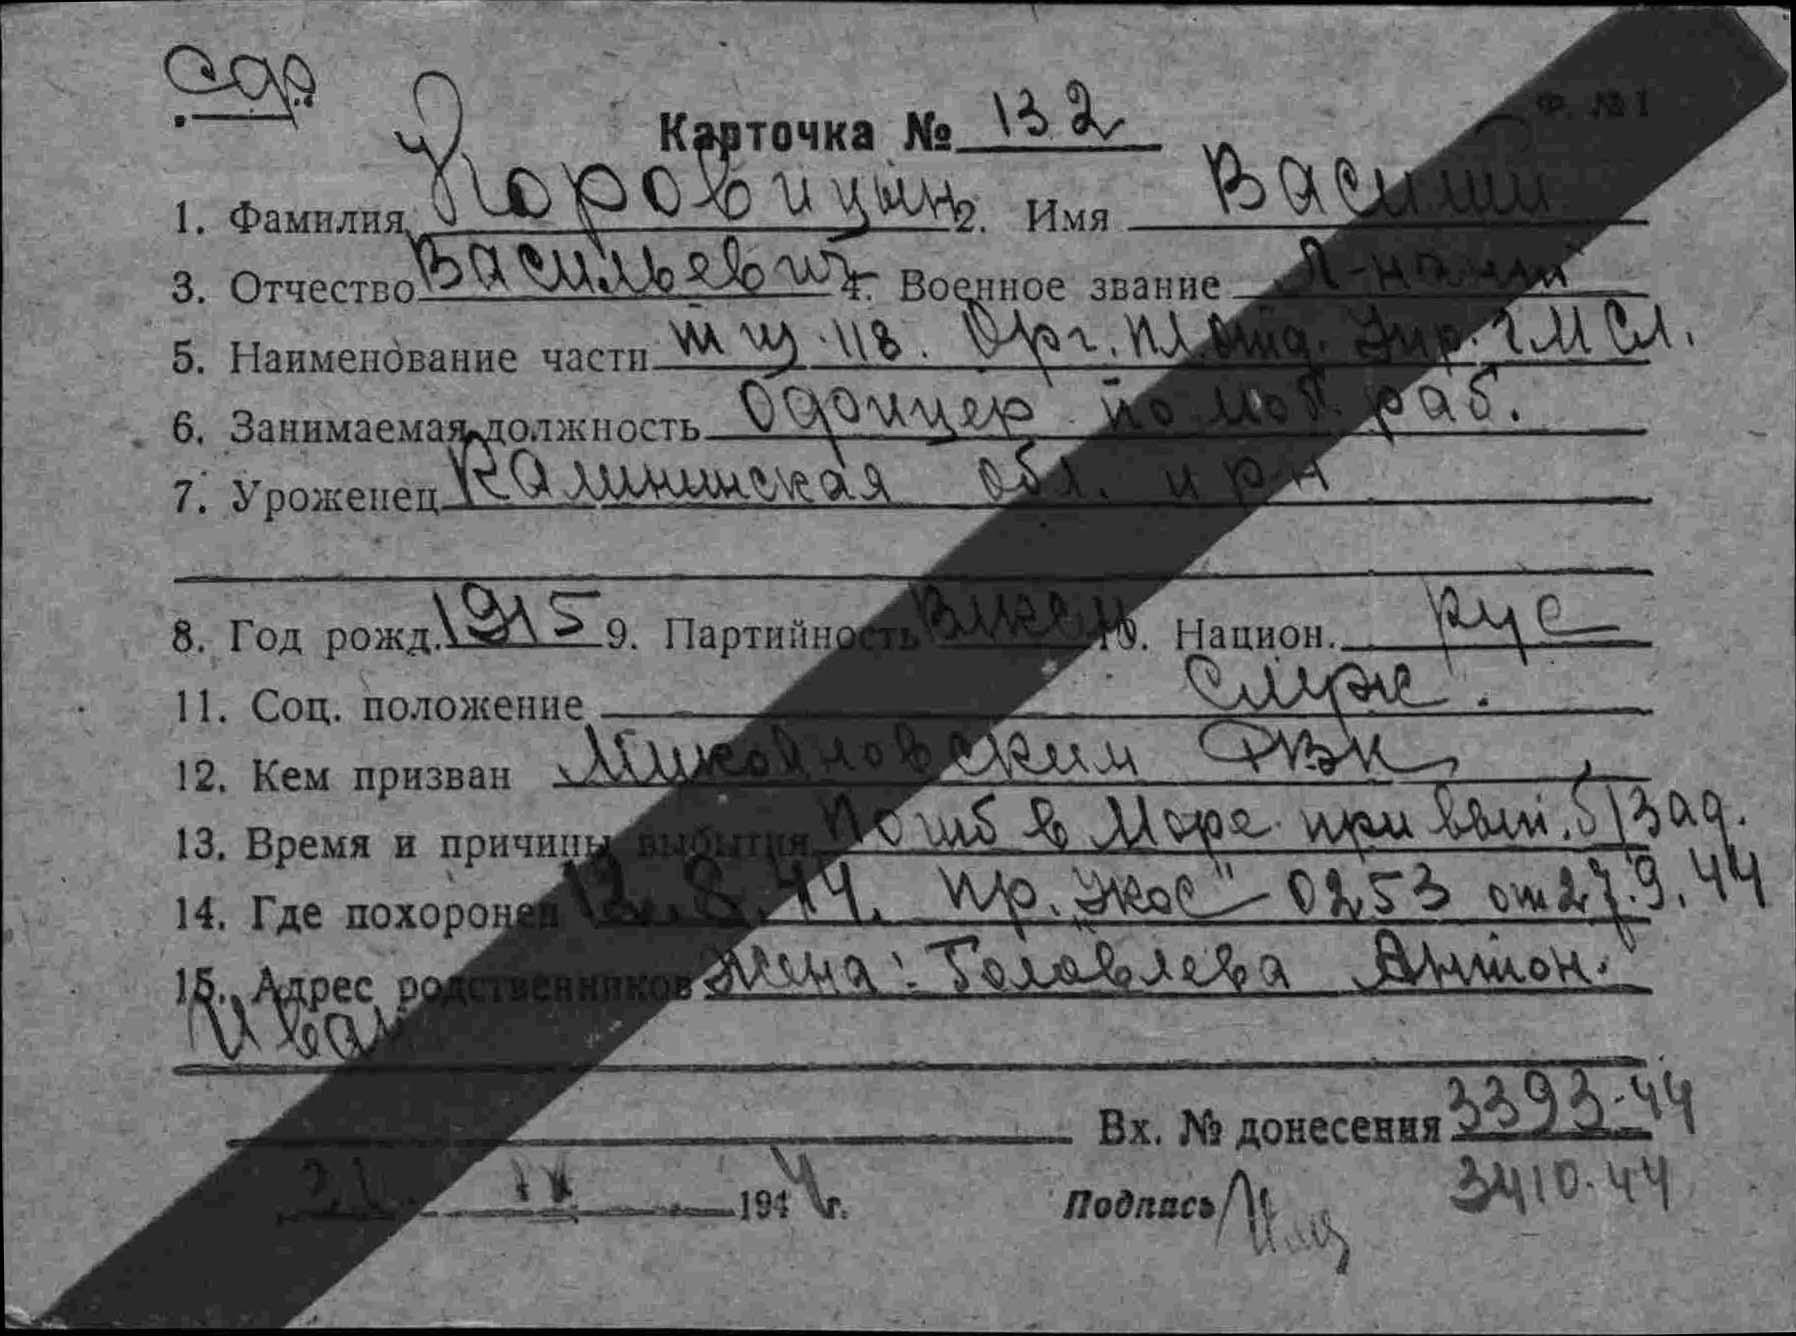 сдр
Ф. № 1
Карточка № 132
1. Фамилия Коровицын 2. Имя Василий
3. Отчество Васильевич 4. Военное звание л-нант
5. Наименование части тщ. 118. Орг. пл. отд. Упр. ГМСл.
6. Занимаемая должность Офицер по моб. раб.
7. Уроженец Калининская обл. и р-н
8. Год рожд. 1915 9. Партийность ВЛКСМ 10. Национ. рус
11. Соц. положение служ.
12. Кем призван РВК
13. Время и причины выбытия Погиб в море при вып. б/зад.
14. Где похоронен 12.8.44. пр. "УКОС" 0253 от 27.9.44
15. Адрес родственников Жена: Головлева Антон.
Иван
Вх. № донесения 3393-44
1944 г. Подпись 3410-44